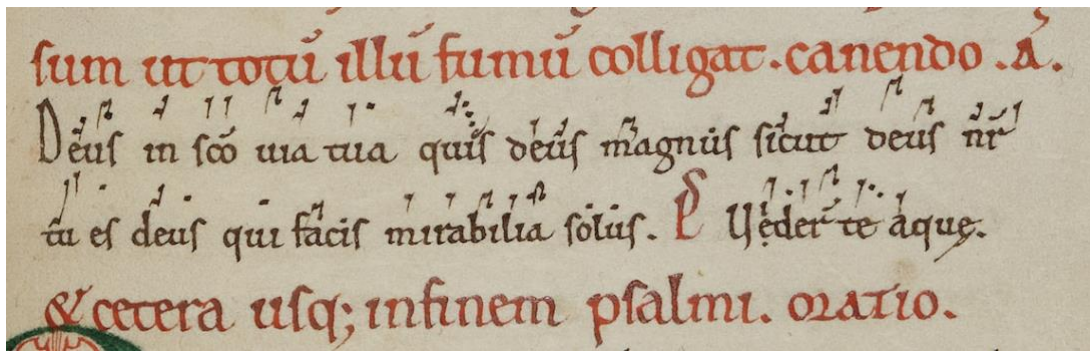 sum ut totū illū fumū colligat. canendo. A̅.
Deus in sc̅o uia tua quis deus magnus sicut deus nr̅
tu es deus qui facis mirabilia solus. P̅s Uider̅ te aque.
& cetera usq; in finem psalmi. oratio.